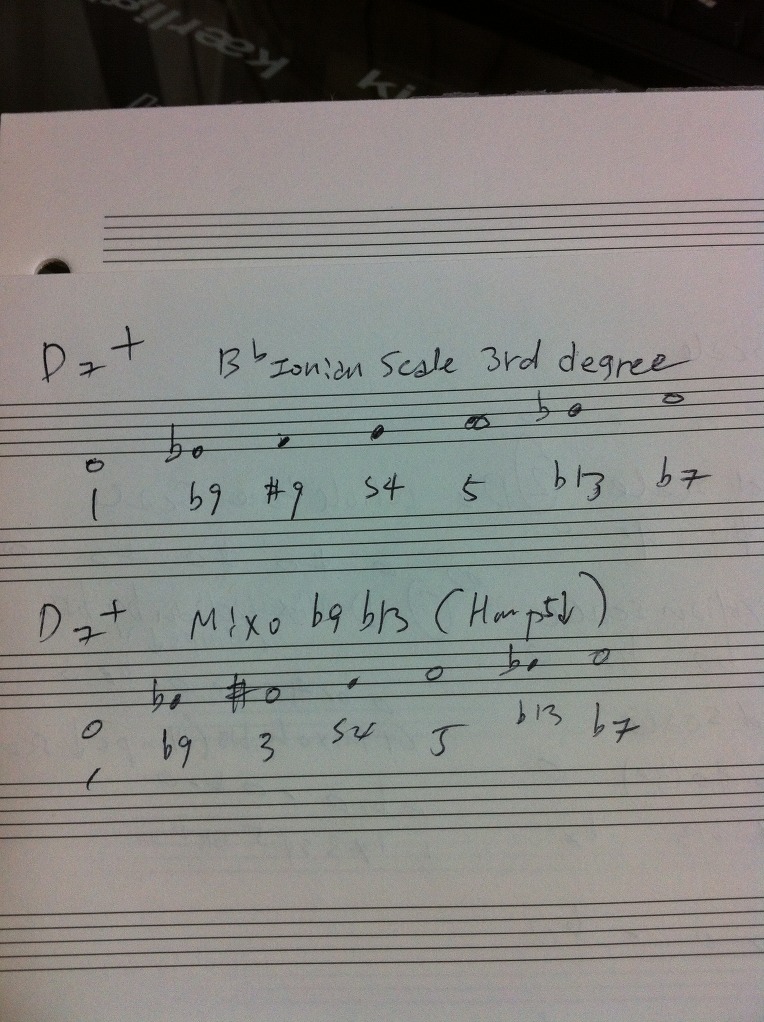 Kaerlig
Ki
D7+ B♭ Ionian Scale 3rd degree
1 b9 #9 S4 5 b13 b7
D7+ Mixo b9 b13 (Hmp5↓)
1 b9 3 S4 5 b13 b7